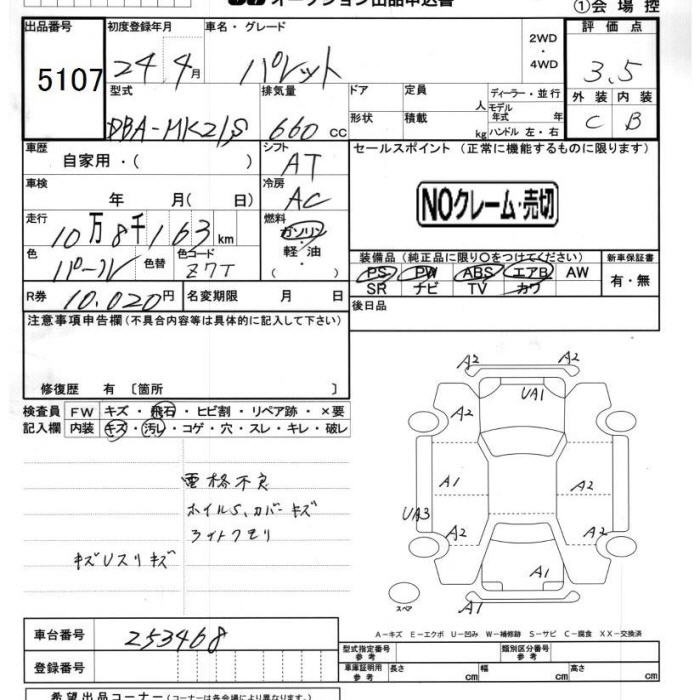 オークション出品申込書
①会場控
出品番号 初度登録年月 車名・グレード 2WD・4WD 評価点
5107 24.4月 パレット 3.5
型式 排気量 ドア 定員 人 ディーラー・並行 外装 内装
DBA-MK21S 660cc 形状 積載 kg モデル年式 年 ハンドル 左・右 C B
車歴 自家用・( ) シフト AT セールスポイント (正常に機能するものに限ります)
車検 年 月(日) 冷房 AC
NOクレーム・売切
走行 10万8千163km 燃料 ガソリン・軽油・( )
色 パール 色替 色コード Z7T
装備品 (純正品に限り○をつけてください) 新車保証書
PS PW ABS エアB AW 有・無
SR ナビ TV カワ
R券 10,020円 名変期限 月 日 後日品
注意事項申告欄(不具合内容等は具体的に記入して下さい)
修復歴 有 〔箇所 〕
検査員 FW キズ・飛石・ヒビ割・リペア跡・×要
記入欄 内装 キズ・汚レ・コゲ・穴・スレ・キレ・破レ
電格不良
ホイルS、カバーキズ
ライトクモリ
キズUスリキズ
A2 A2
UA1
A2
A1 A2
UA3
A2 A2
A1
A1
スペア
A-キズ E-エクボ U-凹み W-補修跡 S-サビ C-腐食 XX-交換済
車台番号 253468
型式指定番号 参考 類別区分番号 参考
登録番号 車庫証明用 参考 長さ cm 幅 cm 高さ cm
希望出品コーナー(コーナーは各会場により異なります。)